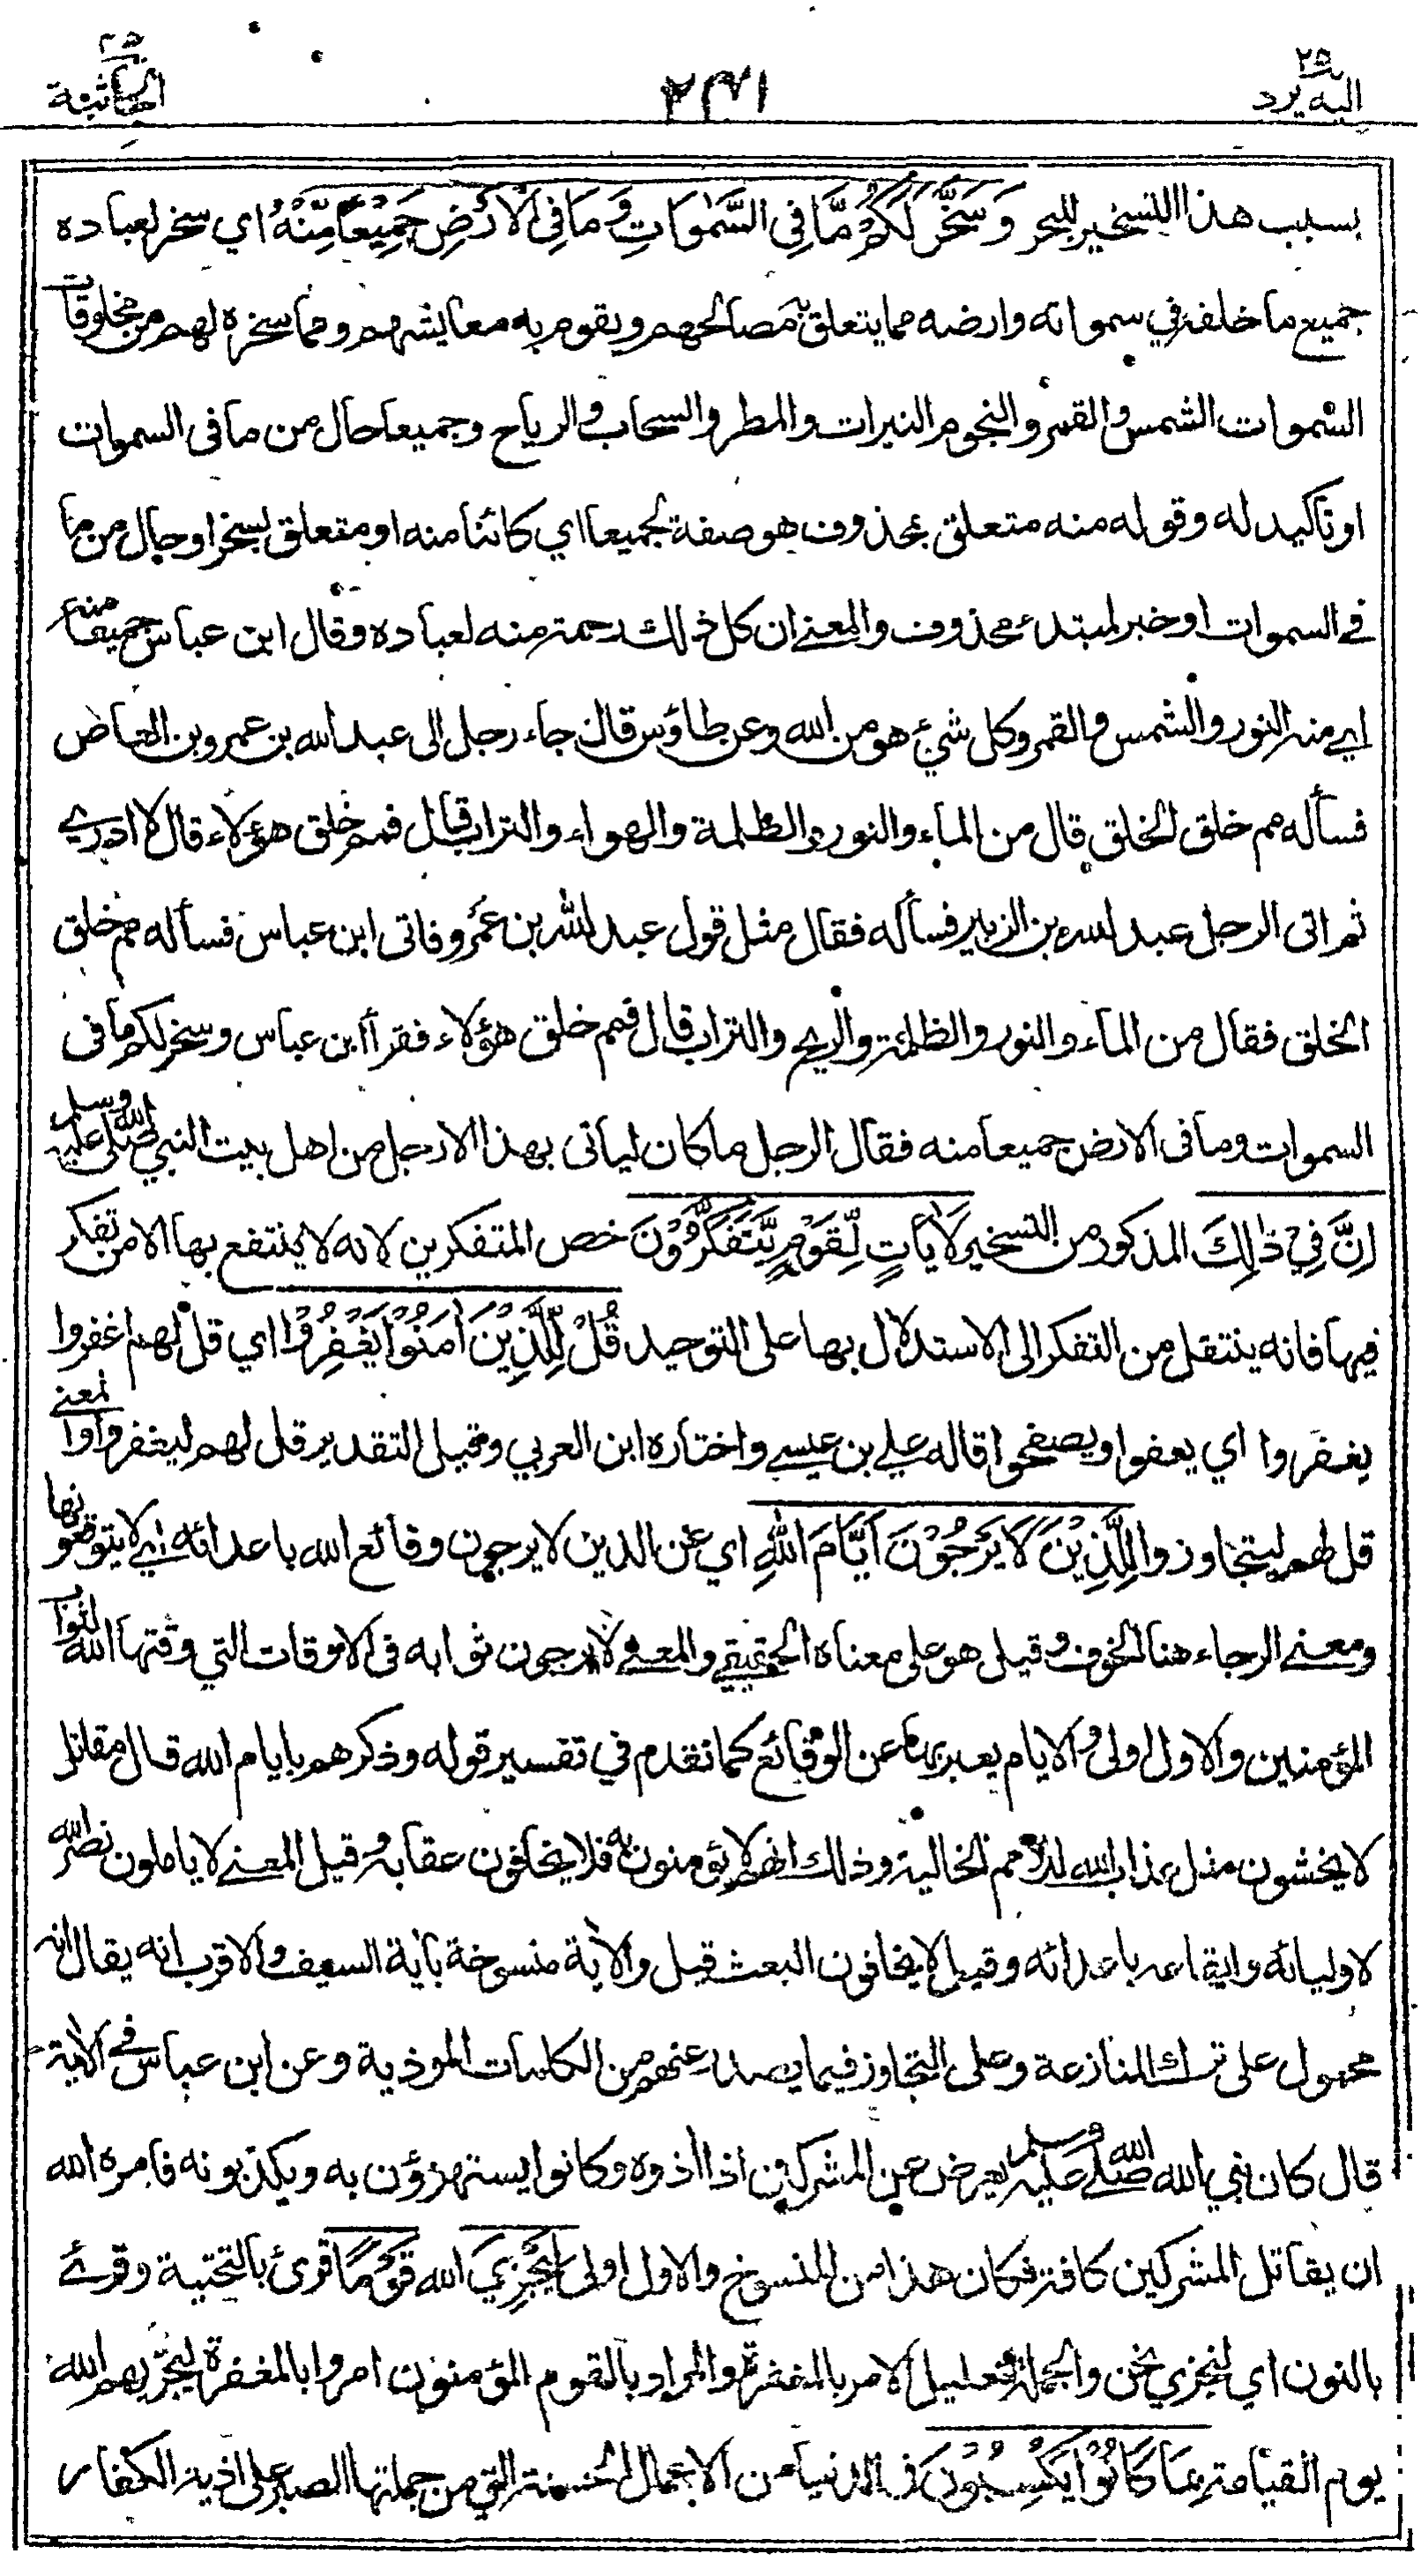 ٢٥ اليه يرد
٢٤١
٤٥ الجاثية
بسبب هذا التسخير للبحر وَسَخَّرَ لَكُمْ مَّا فِي السَّمٰوَاتِ وَمَا فِي الْاَرْضِ جَمِيْعًا مِّنْهُ اي سخر لعباده
جميع ما خلقه في سمواته وارضه مما يتعلق به مصالحهم ويقوم به معايشهم ومما سخره لهم من مخلوقات
السموات الشمس والقمر والنجوم النيرات والمطر والسحاب والرياح وجميعا حال من ما فى السموات
او تاكيد له وقوله منه متعلق بمحذوف هو صفة لجميعا اي كائنا منه او متعلق بسخر او حال من ما
في السموات او خبر لمبتدء محذوف والمعنى ان كل ذلك رحمة منه لعباده وقال ابن عباس جميعا منه
اي منه النور والشمس والقمر وكل شيء هو من الله وعن طاؤس قال جاء رجل الى عبد الله بن عمرو بن العاص
فسأله مم خلق الخلق قال من الماء والنور والظلمة والهواء والتراب قال فمم خلق هؤلاء قال لا ادري
ثم اتى الرجل عبد الله بن الزبير فسأله فقال مثل قول عبد الله بن عمرو فاتى ابن عباس فسأله مم خلق
الخلق فقال من الماء والنور والظلمة والريح والتراب قال فمم خلق هؤلاء فقرأ ابن عباس وسخر لكم ما فى
السموات وما فى الارض جميعا منه فقال الرجل ما كان لياتى بهذا الا رجل من اهل بيت النبي صلى الله عليه وسلم
اِنَّ فِيْ ذٰلِكَ المذكور من التسخير لَاٰيَاتٍ لِّقَوْمٍ يَّتَفَكَّرُوْنَ خص المتفكرين لانه لا ينتفع بها الا من تفكر
فيها فانه ينتقل من التفكر الى الاستدلال بها على التوحيد قُلْ لِّلَّذِيْنَ اٰمَنُوْا يَغْفِرُوْا اي قل لهم اغفروا
يغفروا اي يعفوا ويصفحوا قاله علي بن عيسى واختاره ابن العربي وقيل التقدير قل لهم ليغفروا والمعنى
قل لهم ليتجاوزوا لِلَّذِيْنَ لَا يَرْجُوْنَ اَيَّامَ اللّٰهِ اي عن الذين لا يرجون وقائع الله باعدائه اي لا يتوقعونها
ومعنى الرجاء هنا الخوف وقيل هو على معناه الحقيقي والمعنى لا يرجون ثوابه فى الاوقات التي وقتها الله لثواب
المؤمنين والاول اولى والايام يعبر بها عن الوقائع كما تقدم في تفسير قوله وذكرهم بايام الله قال مقاتل
لا يخشون مثل عذاب الله للامم الخالية وذلك انهم لا يؤمنون به فلا يخافون عقابه وقيل المعنى لا ياملون نصر الله
لاوليائه وايقاعه باعدائه وقيل لا يخافون البعث قيل والاٰية منسوخة باٰية السيف والاقرب انه يقال انه
محمول على ترك المنازعة وعلى التجاوز فيما يصدر عنهم من الكلمات الموذية وعن ابن عباس في الاٰية
قال كان نبي الله صلى الله عليه وسلم يعرض عن المشركين اذا اذوه وكانوا يستهزؤن به ويكذبونه فامره الله
ان يقاتل المشركين كافة فكان هذا من المنسوخ والاول اولى لِيَجْزِيَ الله قَوْمًا قرئ بالتحتية وقرئ
بالنون اي لنجزي نحن والجملة تعليل لامر بالمغفرة والمراد بالقوم المؤمنون امروا بالمغفرة ليجزيهم الله
يوم القيامة بِمَا كَانُوْا يَكْسِبُوْنَ في الدنيا من الاعمال الحسنة التي من جملتها الصبر على اذية الكفار